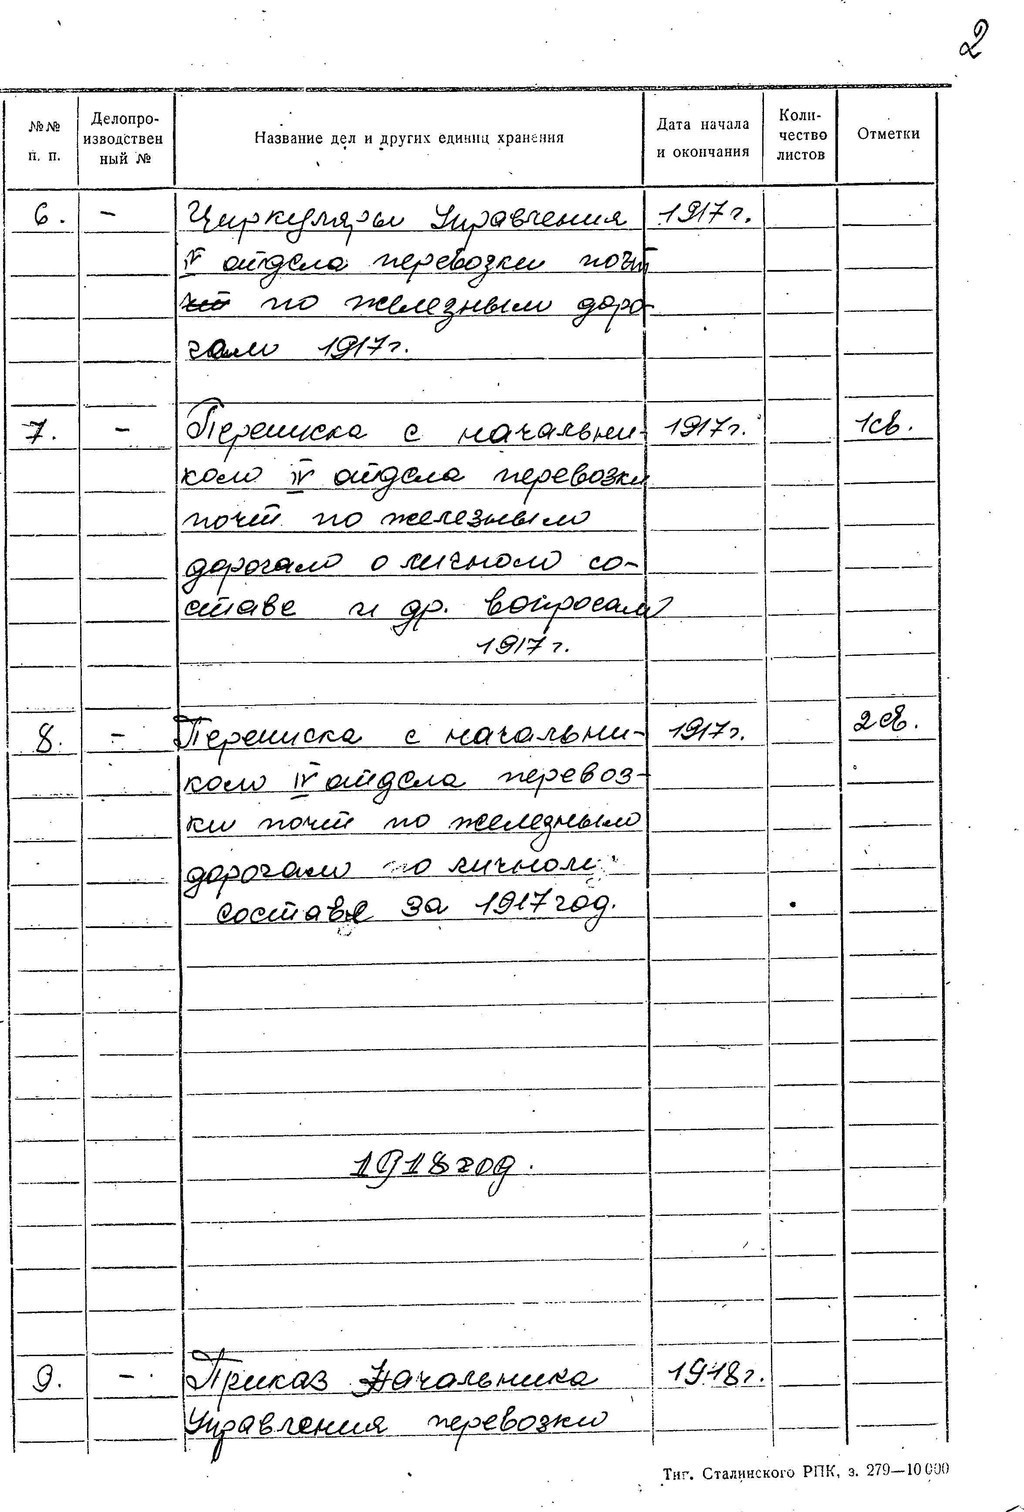 2
№№ п. п. Делопроизводствен ный № Название дел и других единиц хранения Дата начала и окончания Количество листов Отметки
6. – Циркуляры Управления 1917 г.
IV отдела перевозки почт
по железным доро-
гам 1917 г.
7. – Переписка с начальни- 1917 г. 1 св.
ком IV отдела перевозки
почт по железным
дорогам о личном со-
ставе и др. вопросам
1917 г.
8. – Переписка с начальни- 1917 г. 2 св.
ком IV отдела перевоз-
ки почт по железным
дорогам по личном
составе за 1917 год.
1918 год.
9. – Приказ Начальника 1918 г.
Управления перевозки
Тиг. Сталинского РПК, з. 279—10 000